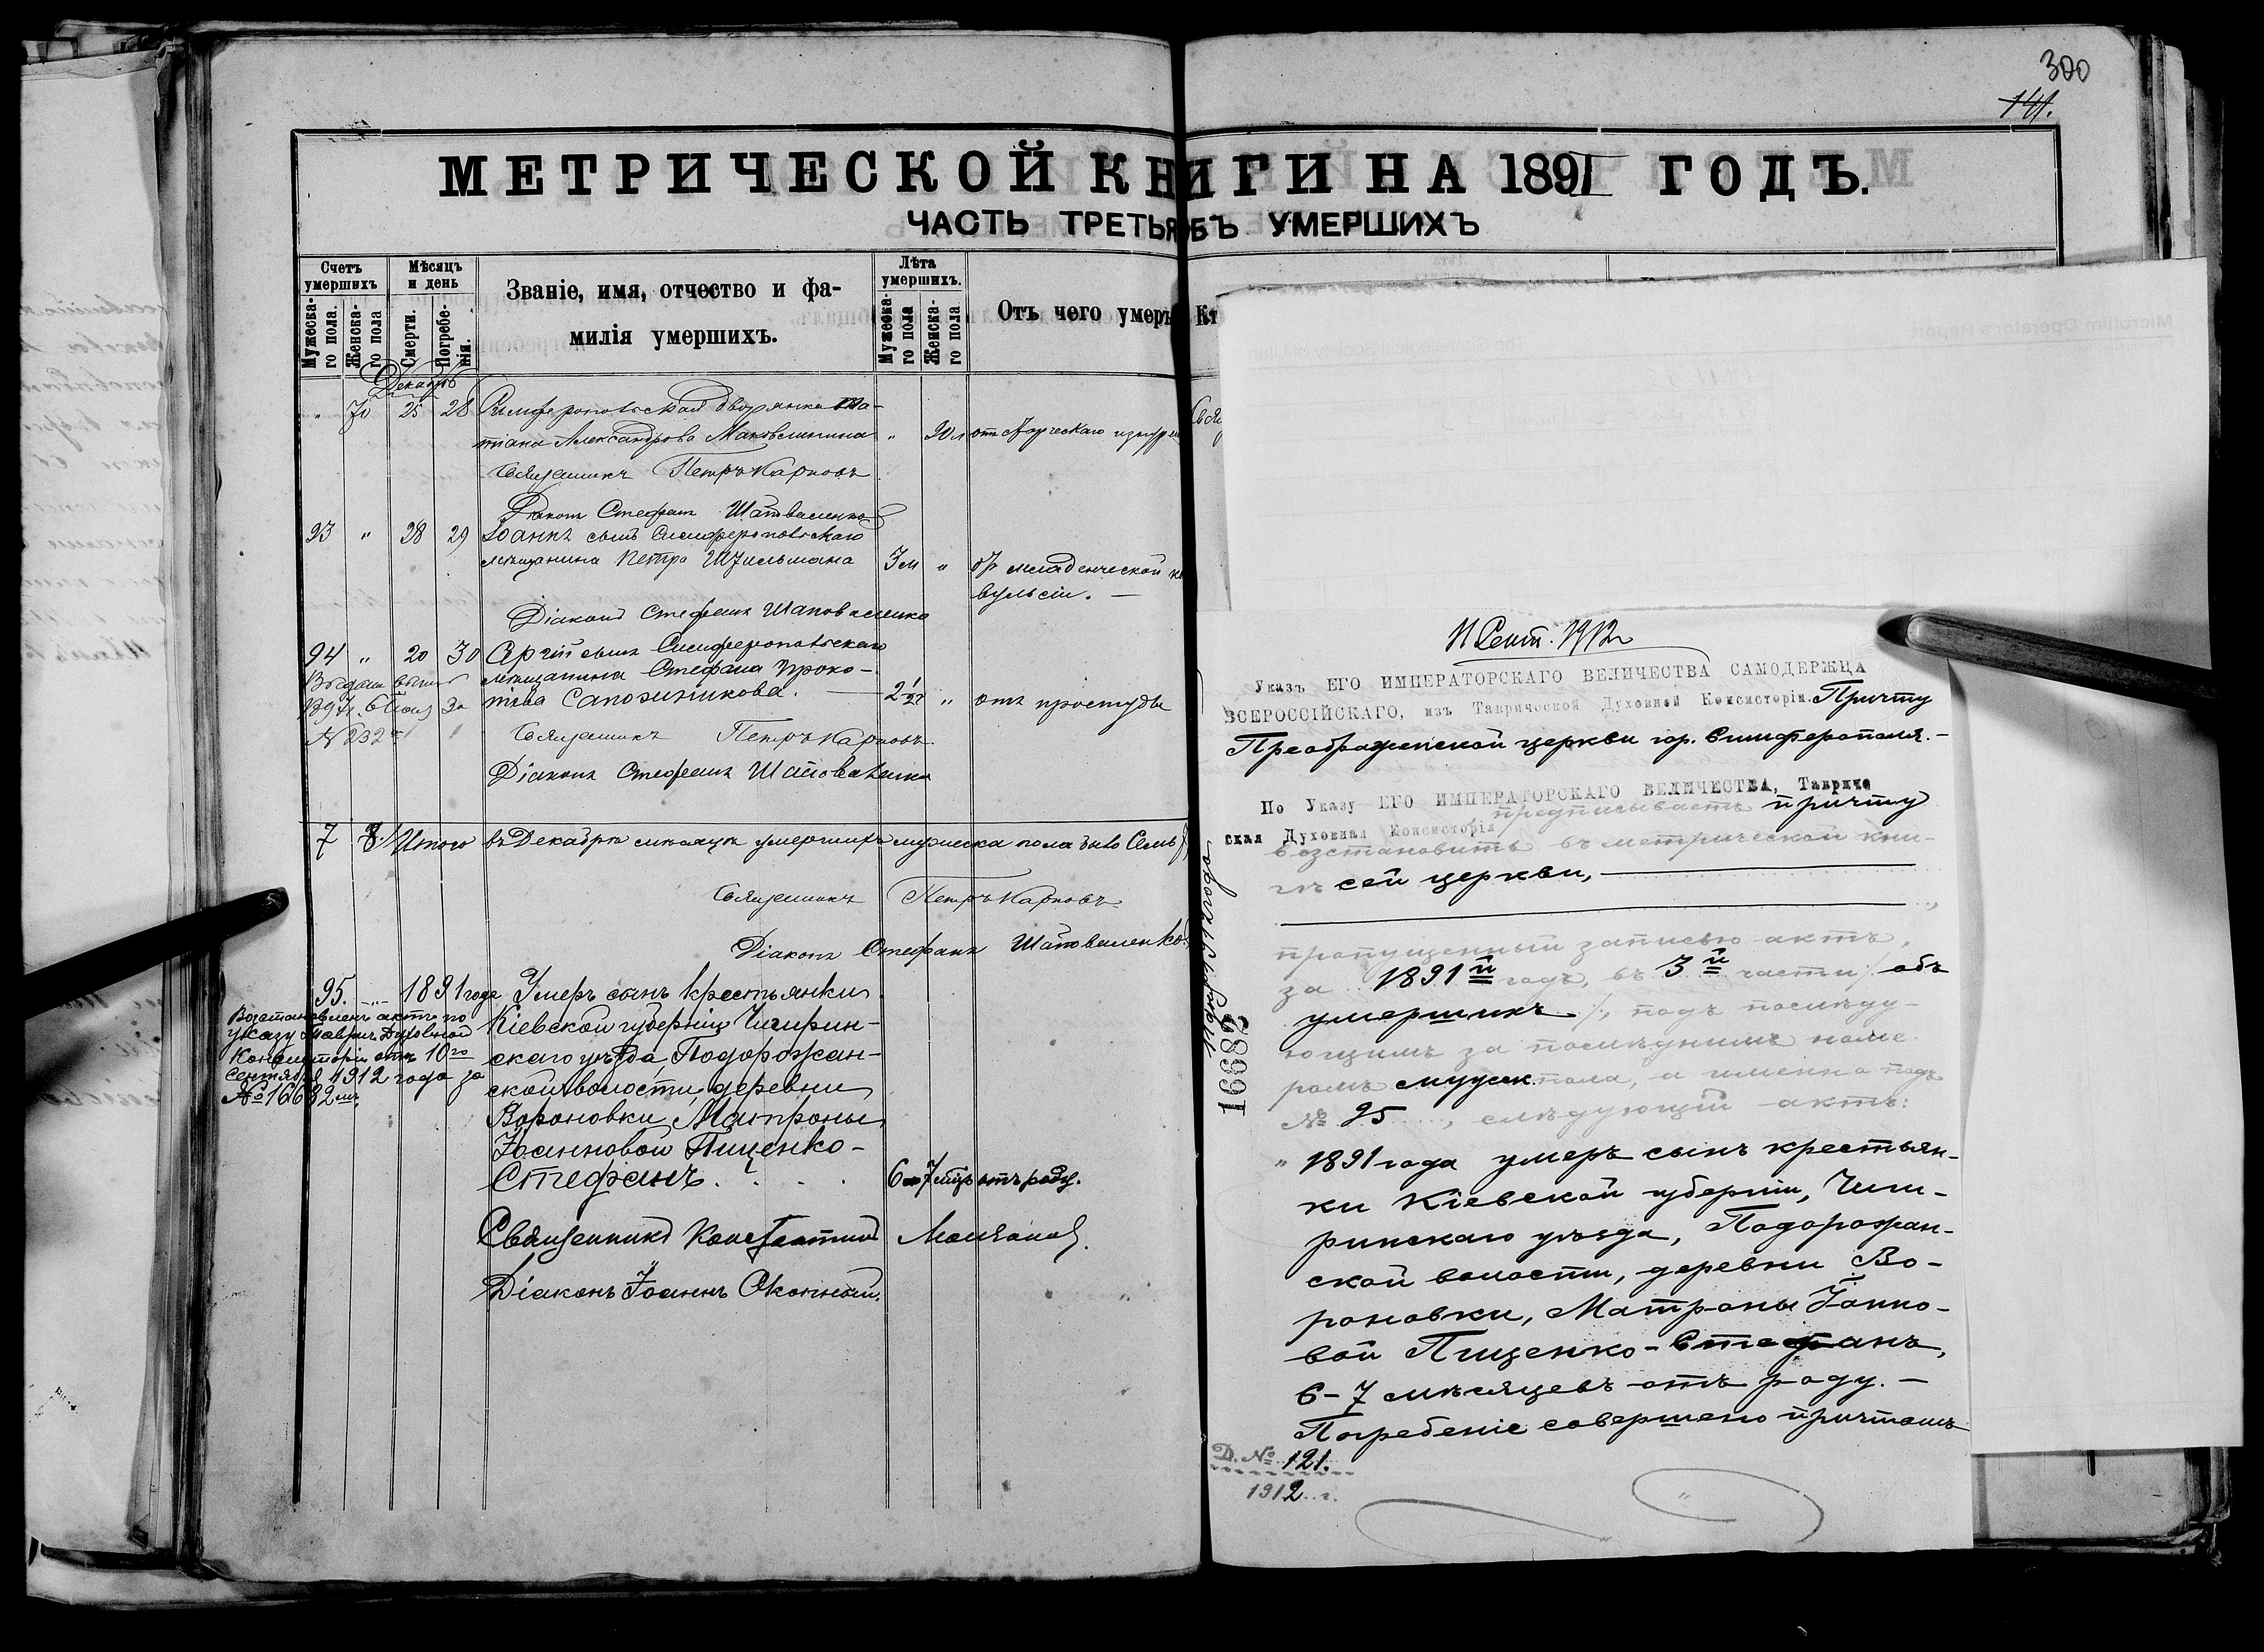 300
141.
МЕТРИЧЕСКОЙ КНИГИ НА 1891 ГОДЪ.
ЧАСТЬ ТРЕТЬЯ ОБЪ УМЕРШИХЪ
Счетъ умершихъ
Мѣсяцъ и день
Званіе, имя, отчество и фамилія умершихъ.
Лѣта умершихъ.
Отъ чего умеръ
Кт
Мужеска-го пола.
Женска-го пола
Смерти.
Погребе-нія.
Мужеска-го пола
Женска-го пола
Декабрь
" 70 25 28 Симферопольская дворянка Та-
тіана Александрова " 90 л отъ старческаго
Священникъ Петръ Карповъ
Діаконъ Стефанъ Шаповаленко
93 " 28 29 Іоаннъ сынъ Симферопольскаго
мѣщанина Петра 3 м " отъ младенческой кон
вульсіи. —
Діаконъ Стефанъ Шаповаленко
94 " 20 30 сынъ Симферопольскаго
мѣщанина Стефана Проко-
піева Сапожникова. — 2 1/2 г " отъ простуды
за
№ 232
Священникъ Петръ Карповъ
Діаконъ Стефанъ Шаповаленко
7 8 / Итого въ Декабрѣ мѣсяцѣ умершихъ мужеска пола было Семь
Священникъ Петръ Карповъ
Діаконъ Стефанъ Шаповаленко
95. -"- 1891 года Умеръ сынъ крестьянки
Возстановленъ актъ по
указу Таврич. Духовной
Консисторіи отъ 10го
Сентября 1912 года за
№ 16682мъ.
Кіевской губерніи Чигирин-
скаго уѣзда, Подорожан-
ской волости, деревни
Вороновки, Матроны
Іоанновой Пищенко-
Стефанъ. . . . 6-7 мѣс. отъ роду.
Священникъ Константинъ
Діаконъ Іоаннъ
11 Сент. 1912 г
Указъ ЕГО ИМПЕРАТОРСКАГО ВЕЛИЧЕСТВА САМОДЕРЖЦА
ВСЕРОССІЙСКАГО, изъ Таврической Духовной Консисторіи. Причту
Преображенской церкви гор. Симферополя. -
По Указу ЕГО ИМПЕРАТОРСКАГО ВЕЛИЧЕСТВА, Тавриче
ская Духовная Консисторія предписываетъ причту
возстановить въ метрической кни-
гѣ сей церкви,
пропущенный записью актъ,
за 1891й годъ, въ 3й части / объ
умершихъ /, подъ послѣду-
ющимъ за послѣднимъ номе-
ромъ мужск. пола, а именно подъ
№ 95 , слѣдующій актъ:
" 1891 года умеръ сынъ крестьян-
ки Кіевской губерніи, Чиги-
ринскаго уѣзда, Подорожан-
ской волости, деревни Во-
роновки, Матроны Іоанно-
вой Пищенко - Стефанъ,
6-7 мѣсяцевъ отъ роду. -
Погребеніе совершено причтомъ
16682
Д. № 121.
1912 г.